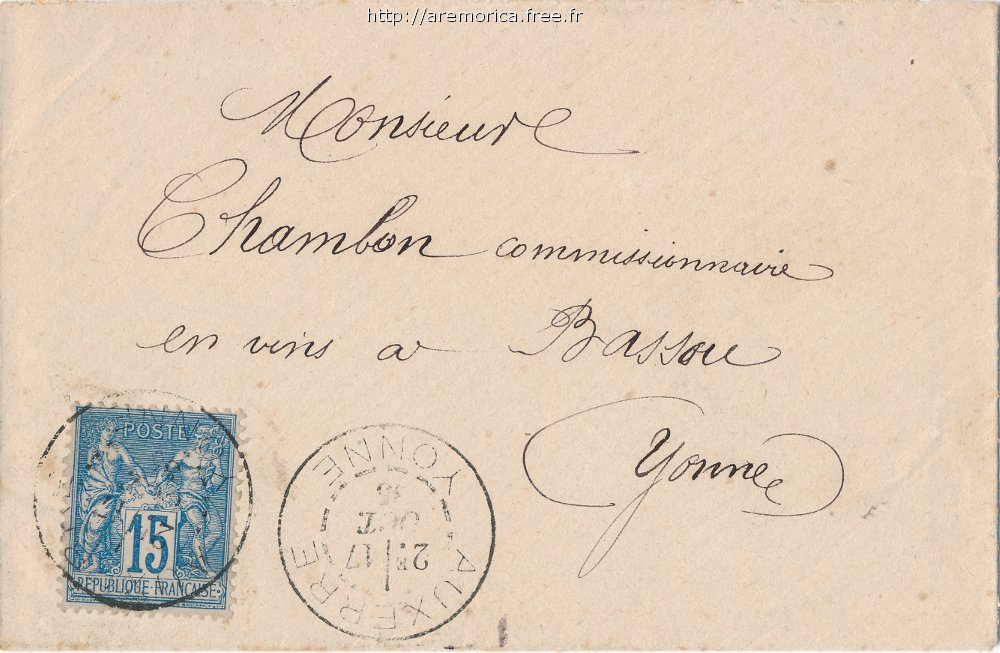 http://aremorica.free.fr
Monsieur
Chambon commissionnaire
en vins a Bassou
Yonne
POSTE
15
REPUBLIQUE FRANCAISE
AUXERRE
2E 17
OCT
YONNE